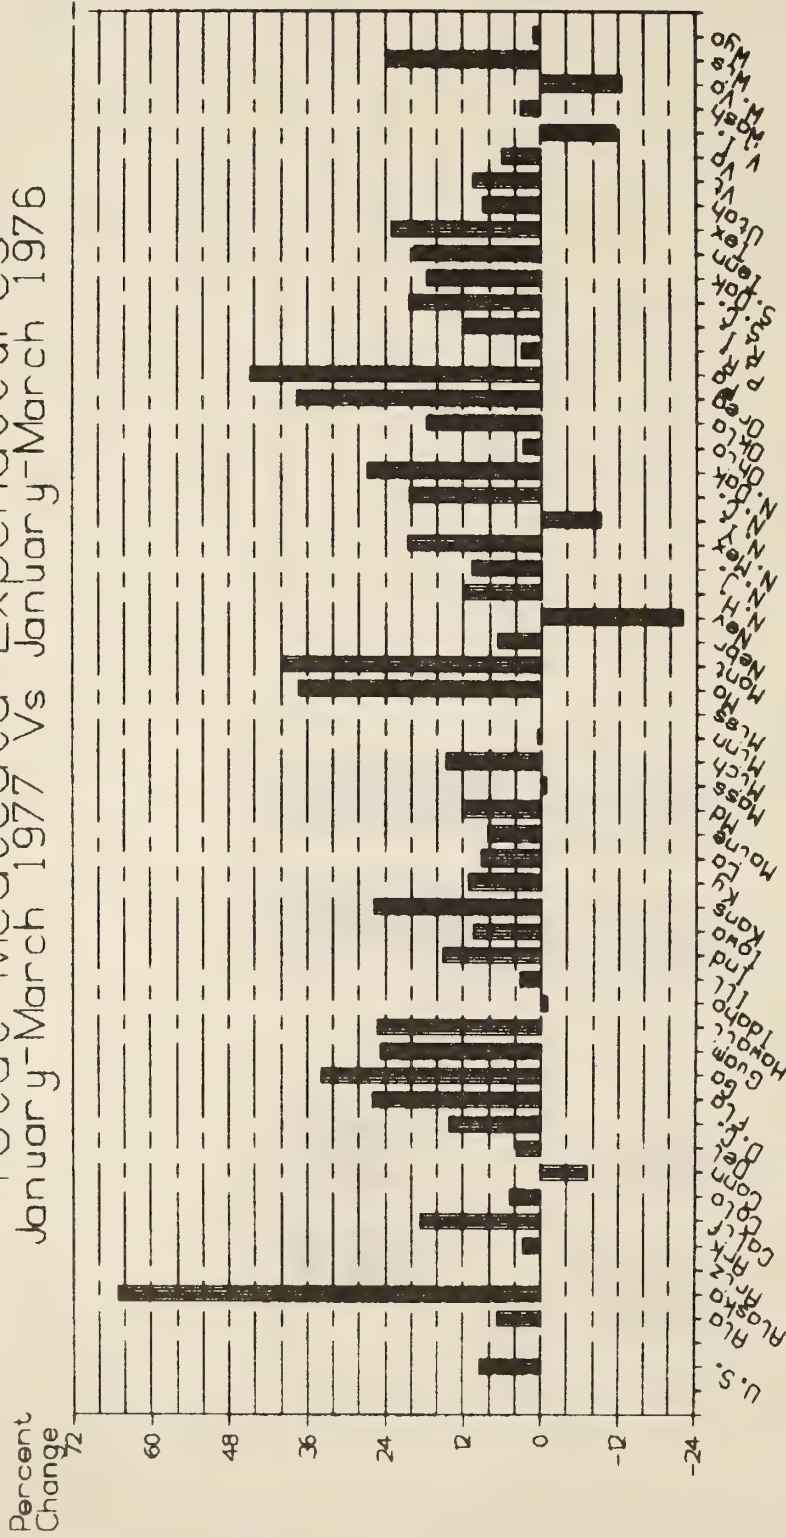 Total Medicaid Expenditures
January-March 1977 Vs January-March 1976
Percent
Change
72
60
48
36
24
12
0
-12
-24
U.S.
Ala
Alaska
Ariz
Ark
Calif
Colo
Conn
Del
D.C.
Fla
Ga
Guam
Hawaii
Idaho
Ill
Ind
Iowa
Kans
Ky
La
Maine
Md
Mass
Mich
Minn
Miss
Mo
Mont
Nebr
Nev
N.H.
N.J.
N.Mex
N.Y.
N.C.
N.Dak
Ohio
Okla
Oreg
Pa
P.R.
R.I.
S.C.
S.Dak
Tenn
Tex
Utah
Vt
Va
V.I.
Wash
W.Va
Wis
Wyo